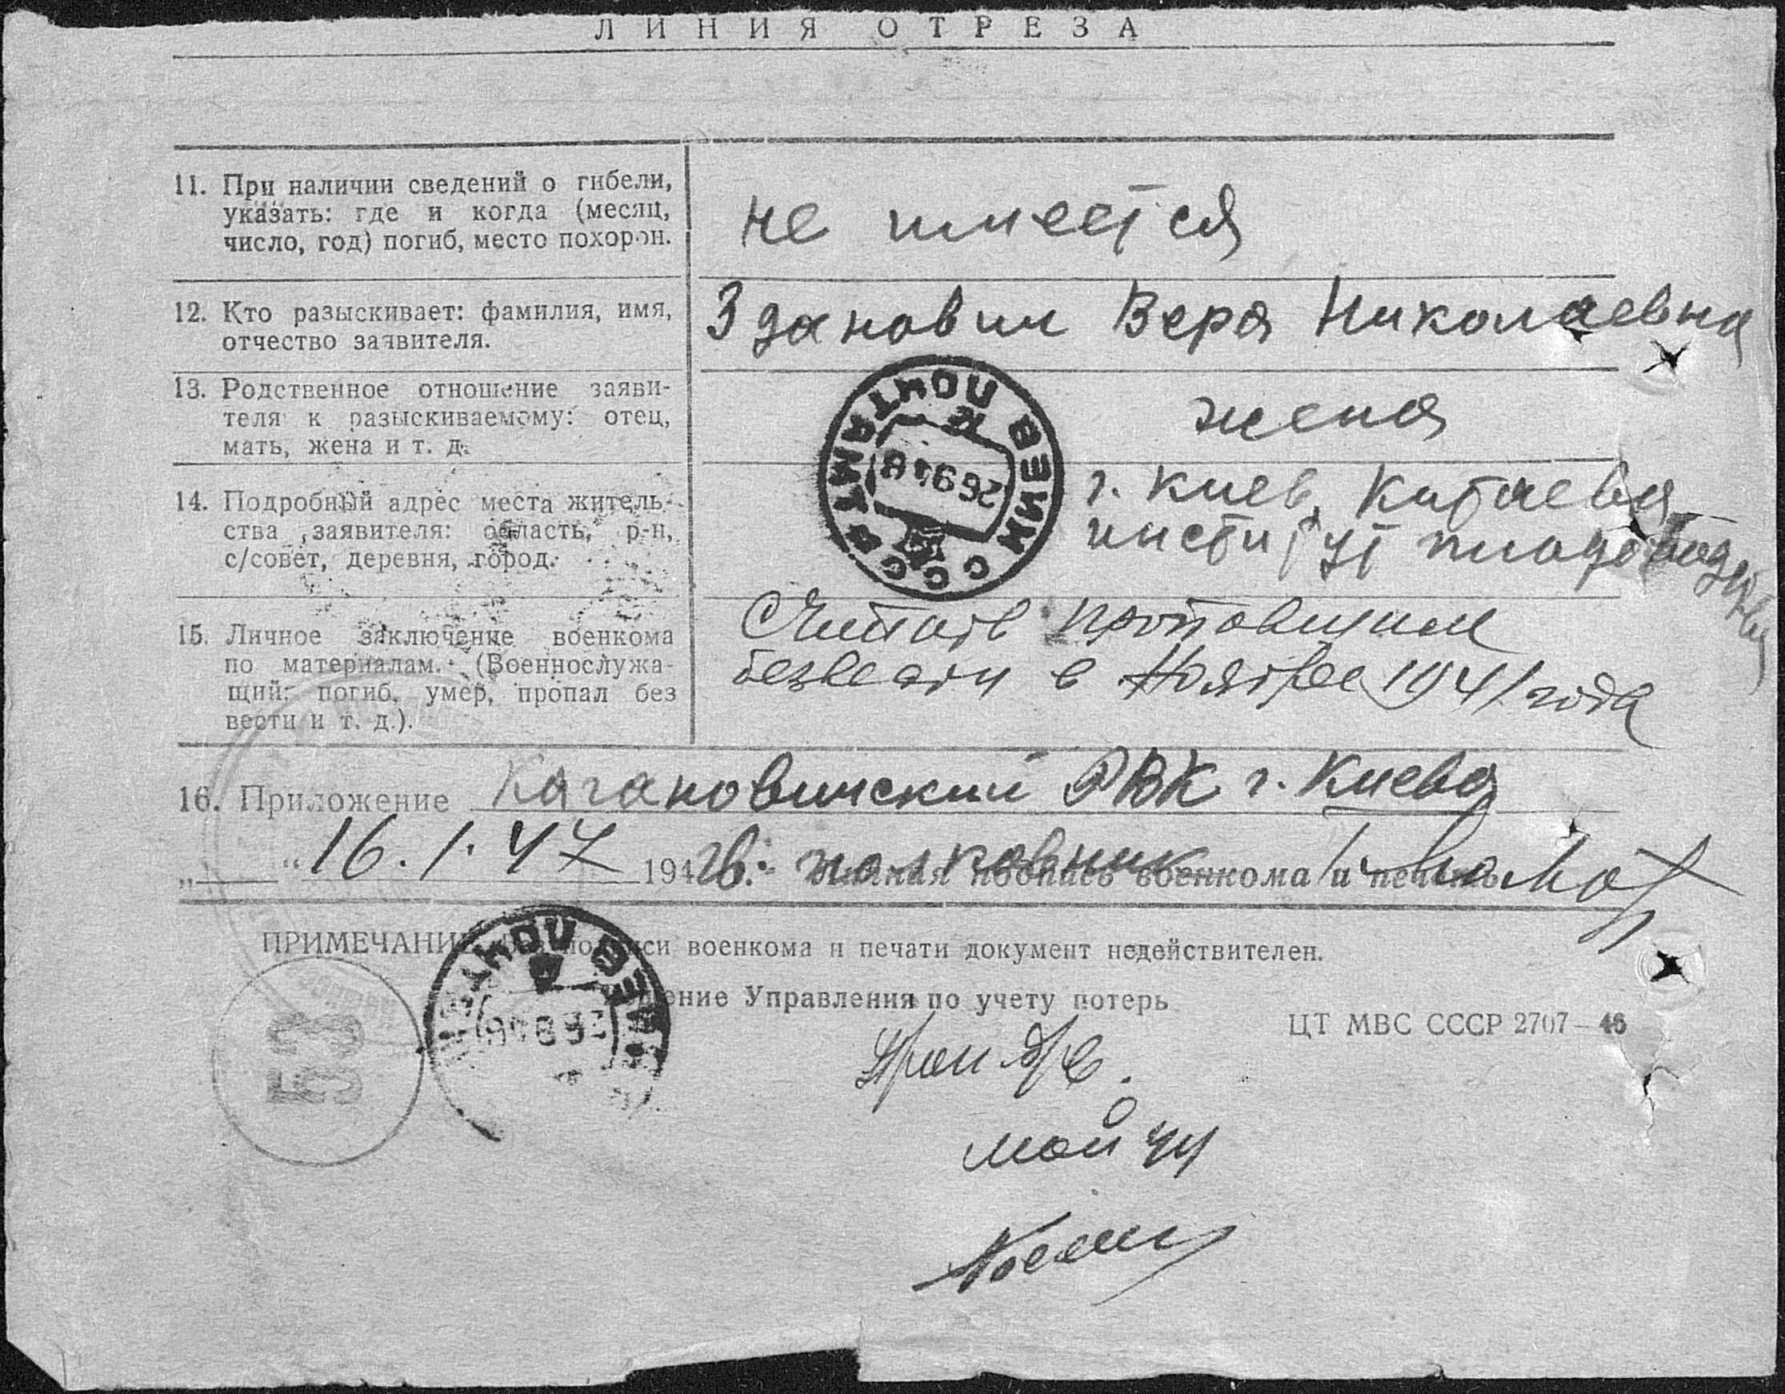 ЛИНИЯ ОТРЕЗА
11. При наличии сведений о гибели,
указать: где и когда (месяц,
число, год) погиб, место похорон.
не имеется
12. Кто разыскивает: фамилия, имя,
отчество заявителя.
Зданович Вера Николаевна
13. Родственное отношение заяви-
теля к разыскиваемому: отец,
мать, жена и т. д.
жена
14. Подробный адрес места житель-
ства заявителя: область, р-н,
с/совет, деревня, город.
г. Киев, Китаево
институт плодоводства
15. Личное заключение военкома
по материалам. (Военнослужа-
щий: погиб, умер, пропал без
вести и т. д.).
Считать пропавшим
безвести в Ноябре 1941 года
16. Приложение Кагановичский РВК г. Киева
„ “ 16.1.47 194 г. полковник Личная подпись военкома и печать
ПРИМЕЧАНИЕ подписи военкома и печати документ недействителен.
ение Управления по учету потерь
ЦТ МВС СССР 2707—46
КИЕВ ПОЧТАМТ
СССР
26 9
КИЕВ ПОЧТАМТ
53